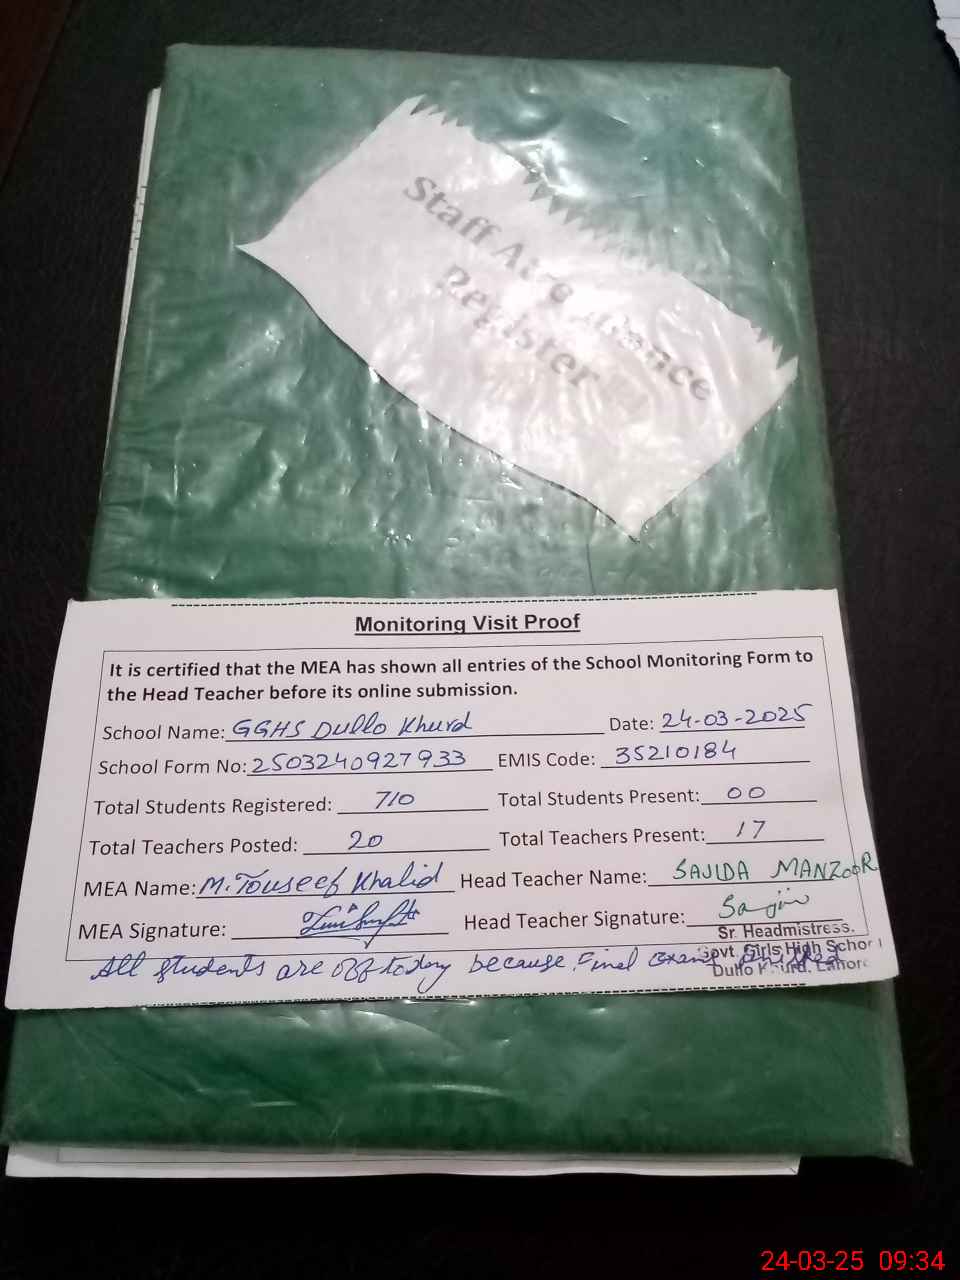 Staff Attendance
Register
Monitoring Visit Proof
It is certified that the MEA has shown all entries of the School Monitoring Form to
the Head Teacher before its online submission.
School Name: GGHS Dullo Khurd Date: 24-03-2025
School Form No: 2503240927933 EMIS Code: 35210184
Total Students Registered: 710 Total Students Present: 00
Total Teachers Posted: 20 Total Teachers Present: 17
MEA Name: M. Touseef Khalid Head Teacher Name: SAJIDA MANZOOR
MEA Signature: Head Teacher Signature:
Sr. Headmistress.
Govt. Girls High School
Dullo Khurd. Lahore
All students are off today because Final exams finished
24-03-25 09:34